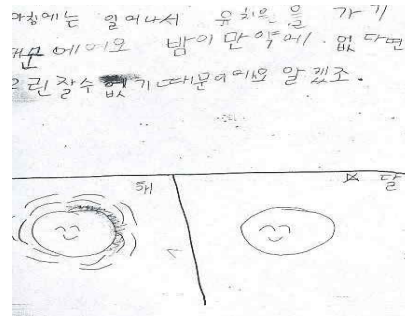 아침에는 일어나서 유치원을 가기
때문에에요 밤이 만약에 없다면
우린 잘수 없기 때문이에요 알겠죠.
해
달